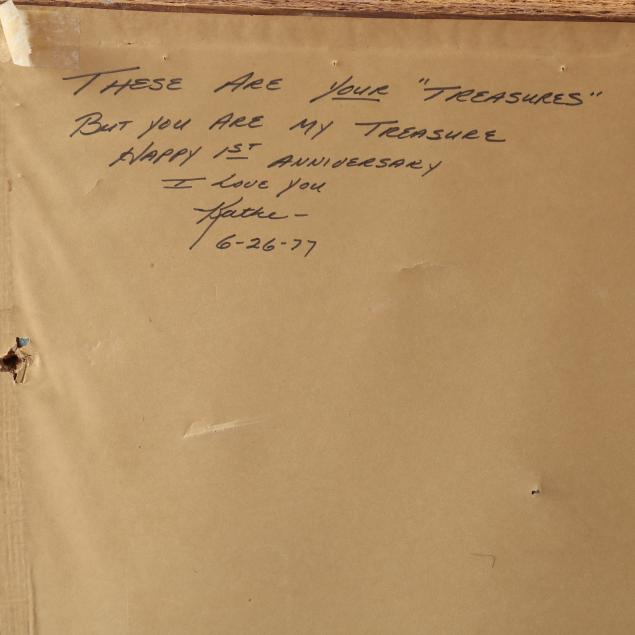 THESE ARE YOUR "TREASURES"
BUT YOU ARE MY TREASURE
HAPPY 1ST ANNIVERSARY
I LOVE YOU
Kathe -
6-26-77